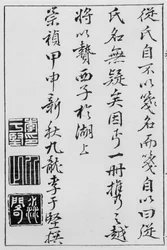 從氏自不以箋名而箋自以曰從
氏名無疑矣因手一冊携之越
將以贄西子於湖上
崇禎甲申新秋九龍李于堅撰